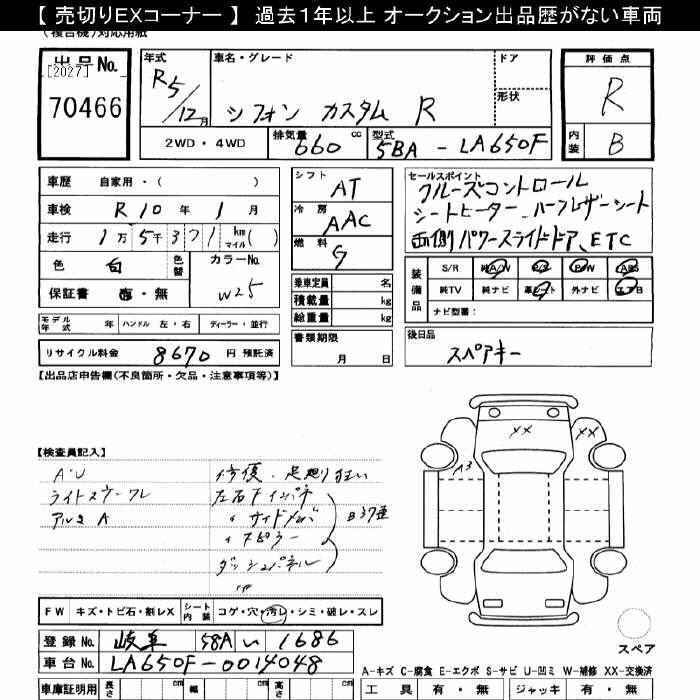 【 売切りEXコーナー 】 過去１年以上 オークション出品歴がない車両
(複合機)対応用紙
出品No.
[2027]
70466
年式
R5/12月
車名・グレード
シフォン カスタム R
ドア
形状
評価点
R
内装 B
2WD・4WD
排気量 660 cc
型式 5BA - LA650F
車歴 自家用・( )
車検 R 10 年 1 月
走行 1万 5千 371 km マイル ( )
色 白 色替 カラーNo.
保証書 有・無 W25
シフト AT
冷房 AAC
燃料 G
セールスポイント
クルーズコントロール
シートヒーター、ハーフレザーシート
両側パワースライドドア、ETC
乗車定員 名
積載量 kg
総重量 kg
装備品
S/R 純A/W P/S P/W ABS
純TV 純ナビ 革シート 外ナビ エアB
ナビ型番:
モデル年式 年 ハンドル 左・右 ディーラー・並行
リサイクル料金 8670 円 預託済
書類期限
月 日
後日品
スペアキー
【出品店申告欄(不良箇所・欠品・注意事項等)】
【検査員記入】
A・U
修復、足廻り狂い
アルミ A
〃 サイドメンバ
〃 Aピラー
ダッシュパネル
XX
XX
A3
スペア
FW キズ・トビ石・割レX シート内装 コゲ・穴・汚レ・シミ・破レ・スレ
登録No. 岐阜 58A い 1686
車台No. LA650F-0014048
A-キズ C-腐食 E-エクボ S-サビ U-凹ミ W-補修 XX-交換済
車庫証明用 長さ cm 幅 cm 高さ cm
工具 有・無 ジャッキ 有・無